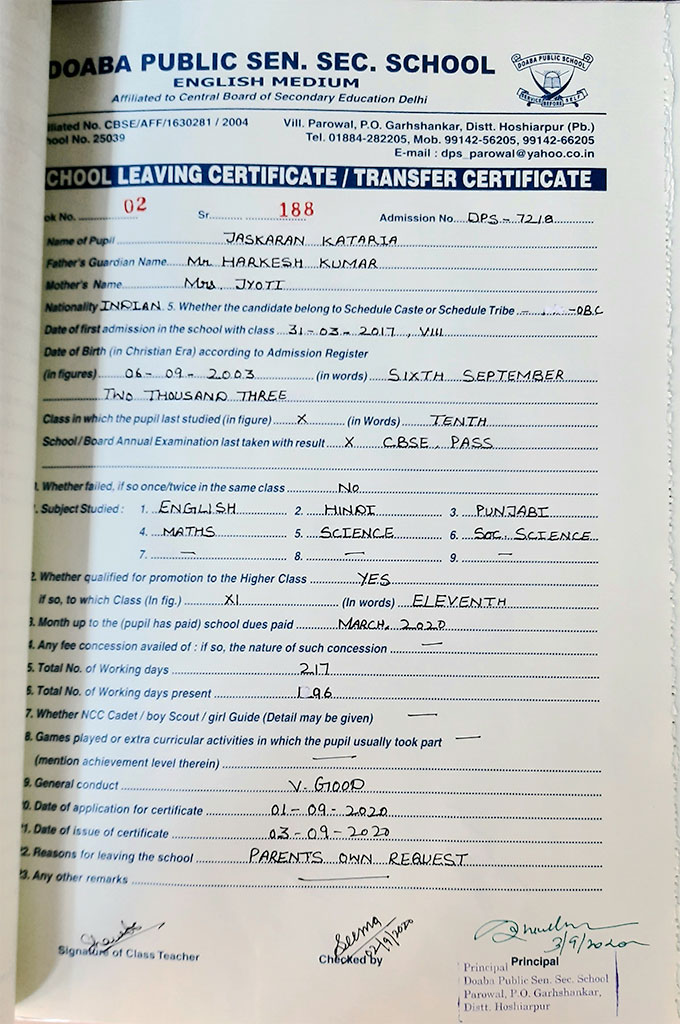 DOABA PUBLIC SEN. SEC. SCHOOL
DOABA PUBLIC SCHOOL
SERVICE BEFORE SELF
ENGLISH MEDIUM
Affiliated to Central Board of Secondary Education Delhi
liated No. CBSE/AFF/1630281 / 2004
Vill. Parowal, P.O. Garhshankar, Distt. Hoshiarpur (Pb.)
hool No. 25039
Tel. 01884-282205, Mob. 99142-56205, 99142-66205
E-mail : dps_parowal@yahoo.co.in
CHOOL LEAVING CERTIFICATE / TRANSFER CERTIFICATE
ok No. 02 Sr. 188 Admission No. DPS-7218
Name of Pupil JASKARAN KATARIA
Father's Guardian Name Mr. HARKESH KUMAR
Mother's Name Mrs. JYOTI
Nationality INDIAN 5. Whether the candidate belong to Schedule Caste or Schedule Tribe - -OBC
Date of first admission in the school with class 31-03-2017, VIII
Date of Birth (in Christian Era) according to Admission Register
(in figures) 06-09-2003 (in words) SIXTH SEPTEMBER
TWO THOUSAND THREE
Class in which the pupil last studied (in figure) X (in Words) TENTH
School / Board Annual Examination last taken with result X CBSE, PASS
Whether failed, if so once/twice in the same class No
Subject Studied : 1. ENGLISH 2. HINDI 3. PUNJABI
4. MATHS 5. SCIENCE 6. SOC. SCIENCE
7. — 8. — 9. —
2. Whether qualified for promotion to the Higher Class YES
if so, to which Class (In fig.) XI (In words) ELEVENTH
3. Month up to the (pupil has paid) school dues paid MARCH, 2020
4. Any fee concession availed of : if so, the nature of such concession —
5. Total No. of Working days 217
6. Total No. of Working days present 196
7. Whether NCC Cadet / boy Scout / girl Guide (Detail may be given) —
8. Games played or extra curricular activities in which the pupil usually took part —
(mention achievement level therein) —
9. General conduct V. GOOD
0. Date of application for certificate 01-09-2020
1. Date of issue of certificate 03-09-2020
2. Reasons for leaving the school PARENTS OWN REQUEST
3. Any other remarks —
Seema
02/9/2020
3/9/2020
Signature of Class Teacher Checked by Principal
Principal
Doaba Public Sen. Sec. School
Parowal, P.O. Garhshankar,
Distt. Hoshiarpur